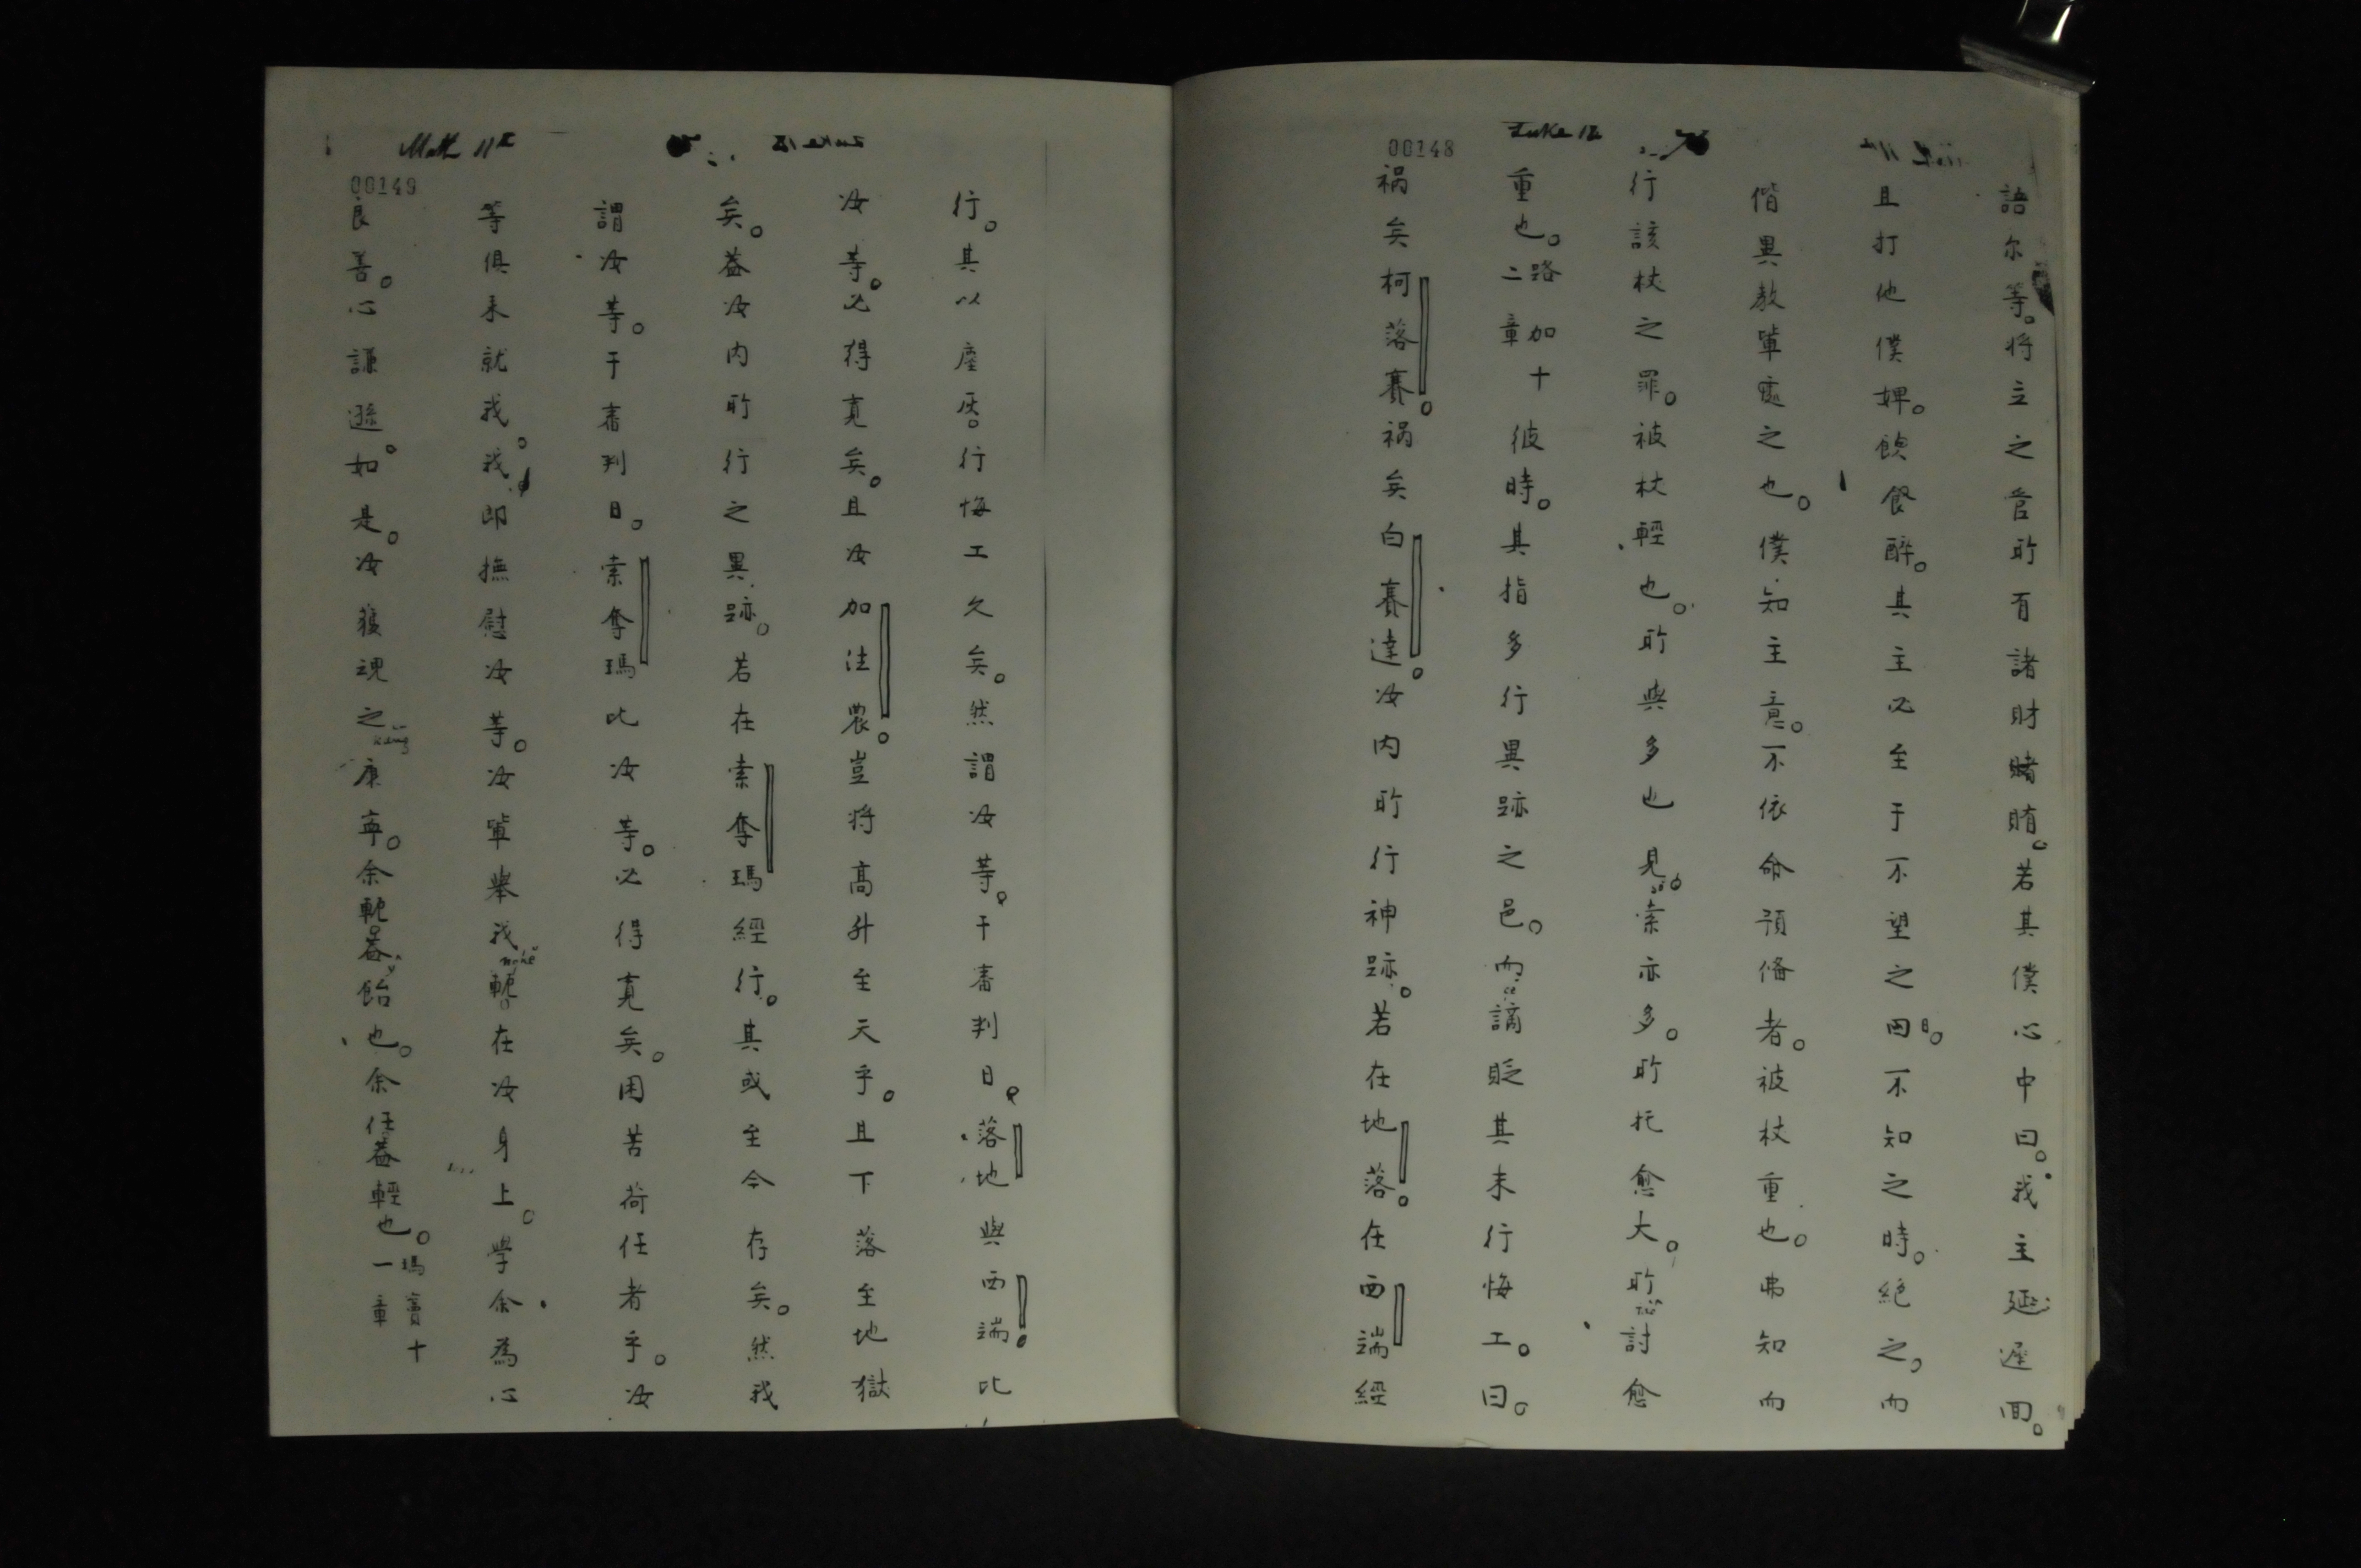 00148
Luke 12
語尔等。将立之管所有諸財賭賄。若其僕心中曰。我主延遲回。
且打他僕婢。飲餐醉。其主必至于不望之日。不知之時。絕之。而
偕異教軰處之也。僕知主意。不依命預俻者。被杖重也。弗知而
行該杖之罪。被杖輕也。所與多也見索亦多。所托愈大。所討愈
重也。路加十二章 彼時。其指多行異跡之邑。而謫貶其未行悔工。曰。
祸矣柯落賽。祸矣白賽達汝内所行神跡。若在地落。在西端經
Matt 11
00149
行。其以塵灰。行悔工久矣。然謂汝等。于審判日。落地與西端。比
汝等。必得寬矣。且汝加法農。豈将高升至天乎。且下落至地獄
矣。葢汝内所行之異跡。若在索奪瑪經行。其或至今存矣。然我
謂汝等。于審判日。索奪瑪比汝等。必得寬矣。困苦荷任者乎。汝
等俱来就我。我即撫慰汝等。汝軰舉我軛。在汝身上。學余為心
良善。心謙遜。如是。汝獲魂之康寧。余軛葢飴也。余任葢輕也。瑪竇十一章